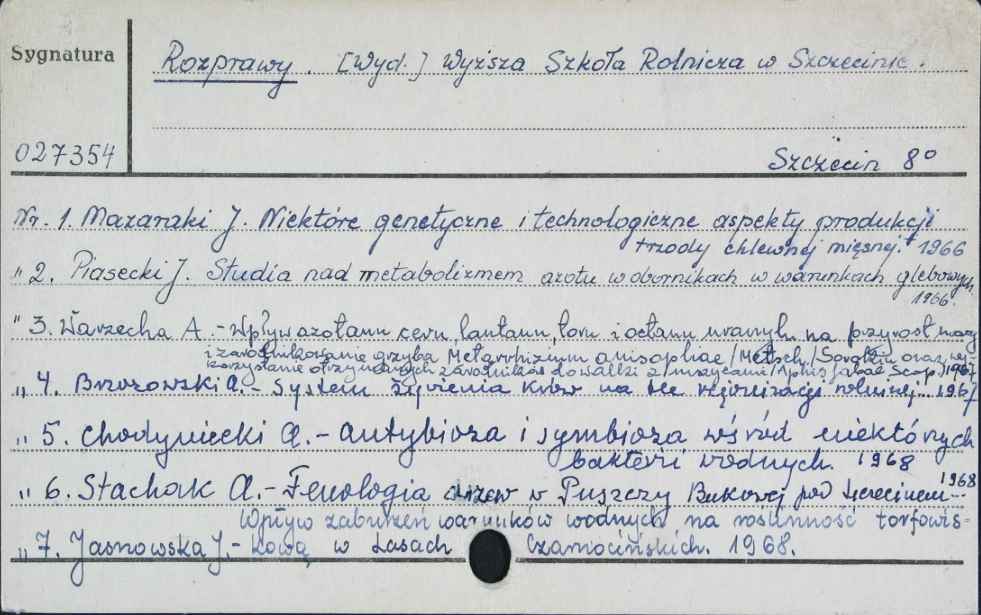 Sygnatura
Rozprawy. [Wyd.] Wyższa Szkoła Rolnicza w Szczecinie.
027354
Szczecin 8°
Nr. 1. Mazaraki J. Niektóre genetyczne i technologiczne aspekty produkcji
trzody chlewnej mięsnej. 1966
" 2. Piasecki J. Studia nad metabolizmem azotu w obornikach w warunkach glebowych
1966
" 3. Warzecha A.- Wpływ azotanu ceru, lantanu, toru i octanu uranylu na przyrost masy
i zarodnikowanie grzyba Metarrhizium anisopliae /Metsch./ Sorokin oraz wy-
korzystanie otrzymanych zarodników do walki z mszycami /Aphis fabae Scop./ 1967
" 4. Brzozowski A.- System żywienia krów na tle rejonizacji rolniczej. 1967
" 5. Chodyniecki A.- Antybioza i symbioza wśród niektórych
bakterii wodnych. 1968
" 6. Stachak A.- Fenologia drzew w Puszczy Bukowej pod Szczecinem 1968
Wpływ zaburzeń warunków wodnych na roślinność torfowis-
" 7. Jasnowska J.- kową w Lasach Czarnocińskich. 1968.